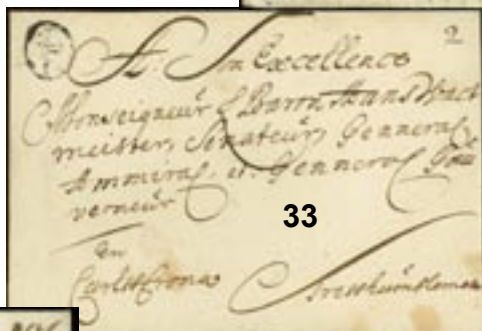 2
A Son Excellence
Monseigneur l Baron, Hans Wact
meister, Senateur, Genneral
Ammiral, et Genneral Gou
verneur
33
en
Carlscrona